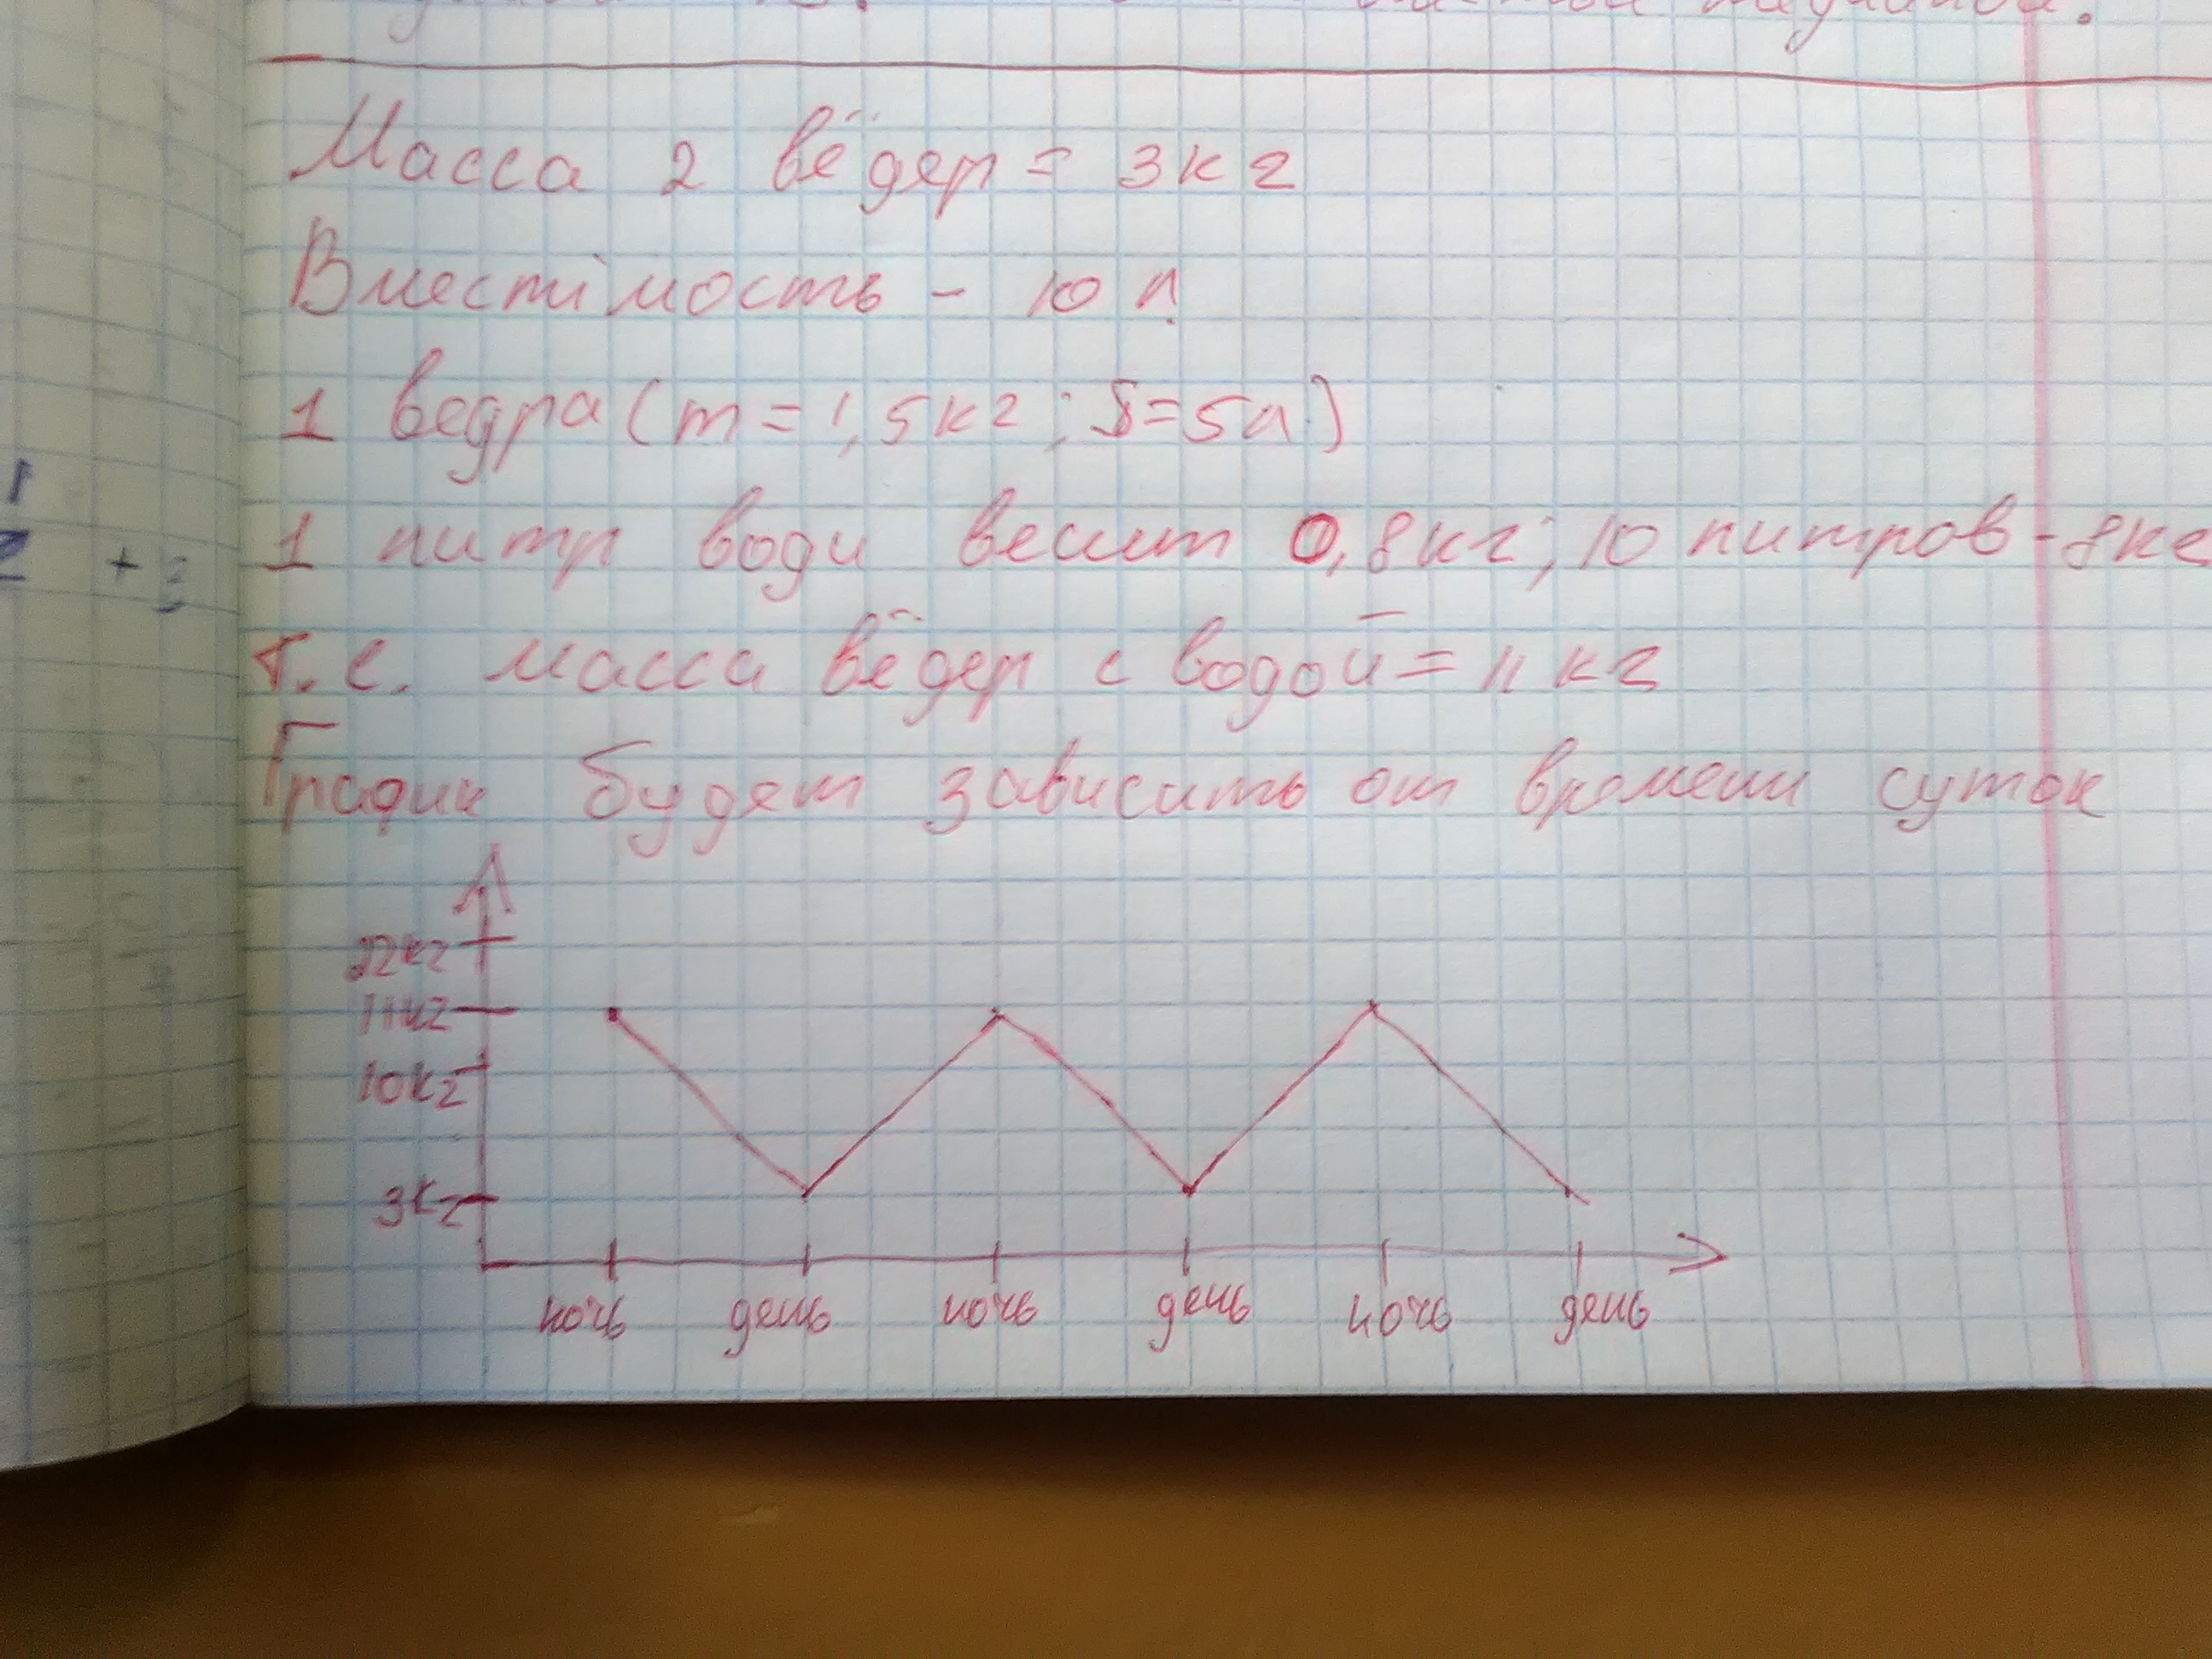 Масса 2 вёдер = 3кг
Вместімость - 10 л.
1 ведра (m = 1,5кг; S=5л.)
1 литр води весит 0,8кг; 10 литров - 8кг
т.е. масса вёдер с водой = 11 кг
График будет зависить от времени суток
22кг
11кг
10кг
3кг
ночь день ночь день ночь день
1
2 + 3